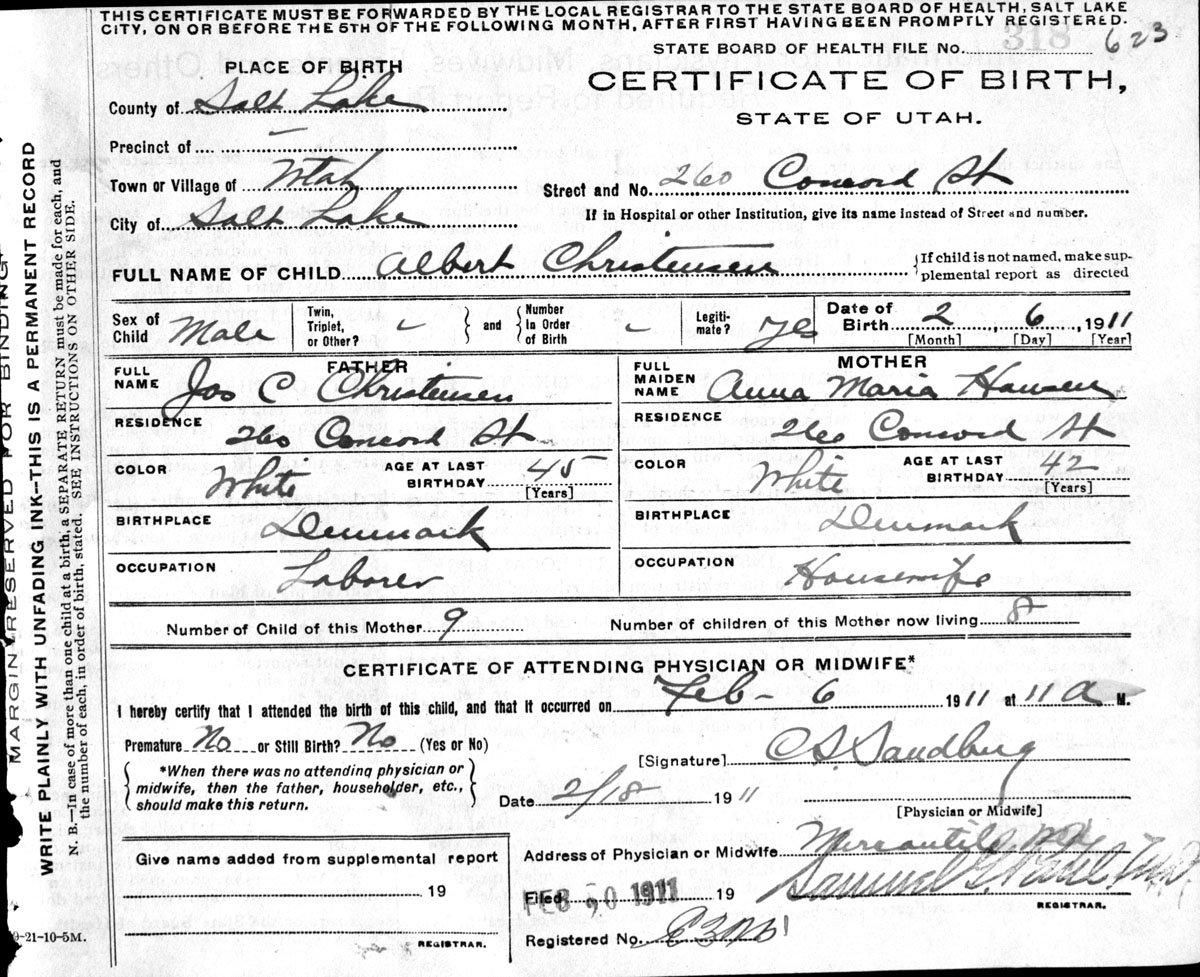 THIS CERTIFICATE MUST BE FORWARDED BY THE LOCAL REGISTRAR TO THE STATE BOARD OF HEALTH, SALT LAKE
CITY, ON OR BEFORE THE 5TH OF THE FOLLOWING MONTH, AFTER FIRST HAVING BEEN PROMPTLY REGISTERED.
STATE BOARD OF HEALTH FILE No. 318 623
PLACE OF BIRTH
CERTIFICATE OF BIRTH,
STATE OF UTAH.
County of Salt Lake
Precinct of —
Town or Village of Utah
Street and No. 260 Concord St
City of Salt Lake
If in Hospital or other Institution, give its name instead of Street and number.
FULL NAME OF CHILD Albert Christensen
{If child is not named, make sup-
plemental report as directed
Sex of Child Male
Twin, Triplet, or Other? } and { Number in Order of Birth
Legiti- mate? Yes
Date of Birth 2, 6, 1911
[Month] [Day] [Year]
FATHER
FULL NAME Jos C Christensen
RESIDENCE 260 Concord St
COLOR White AGE AT LAST BIRTHDAY 45
[Years]
BIRTHPLACE Denmark
OCCUPATION Laborer
MOTHER
FULL MAIDEN NAME Anna Maria Hansen
RESIDENCE 260 Concord St
COLOR White AGE AT LAST BIRTHDAY 42
[Years]
BIRTHPLACE Denmark
OCCUPATION Housewife
Number of Child of this Mother 9
Number of children of this Mother now living 8
CERTIFICATE OF ATTENDING PHYSICIAN OR MIDWIFE*
I hereby certify that I attended the birth of this child, and that it occurred on Feb - 6 1911 at 11 a M.
Premature No or Still Birth? No (Yes or No)
{*When there was no attending physician or
midwife, then the father, householder, etc.,
should make this return.}
[Signature] C.S. Sandberg
Date 2/18 1911
[Physician or Midwife]
Give name added from supplemental report
19
REGISTRAR.
Address of Physician or Midwife Mercantile
Filed FEB 1911 19 Samuel G.
REGISTRAR.
Registered No.
MARGIN RESERVED FOR BINDING
WRITE PLAINLY WITH UNFADING INK—THIS IS A PERMANENT RECORD
N. B.—In case of more than one child at a birth, a SEPARATE RETURN must be made for each, and
the number of each, in order of birth, stated. SEE INSTRUCTIONS ON OTHER SIDE.
-21-10-5M.